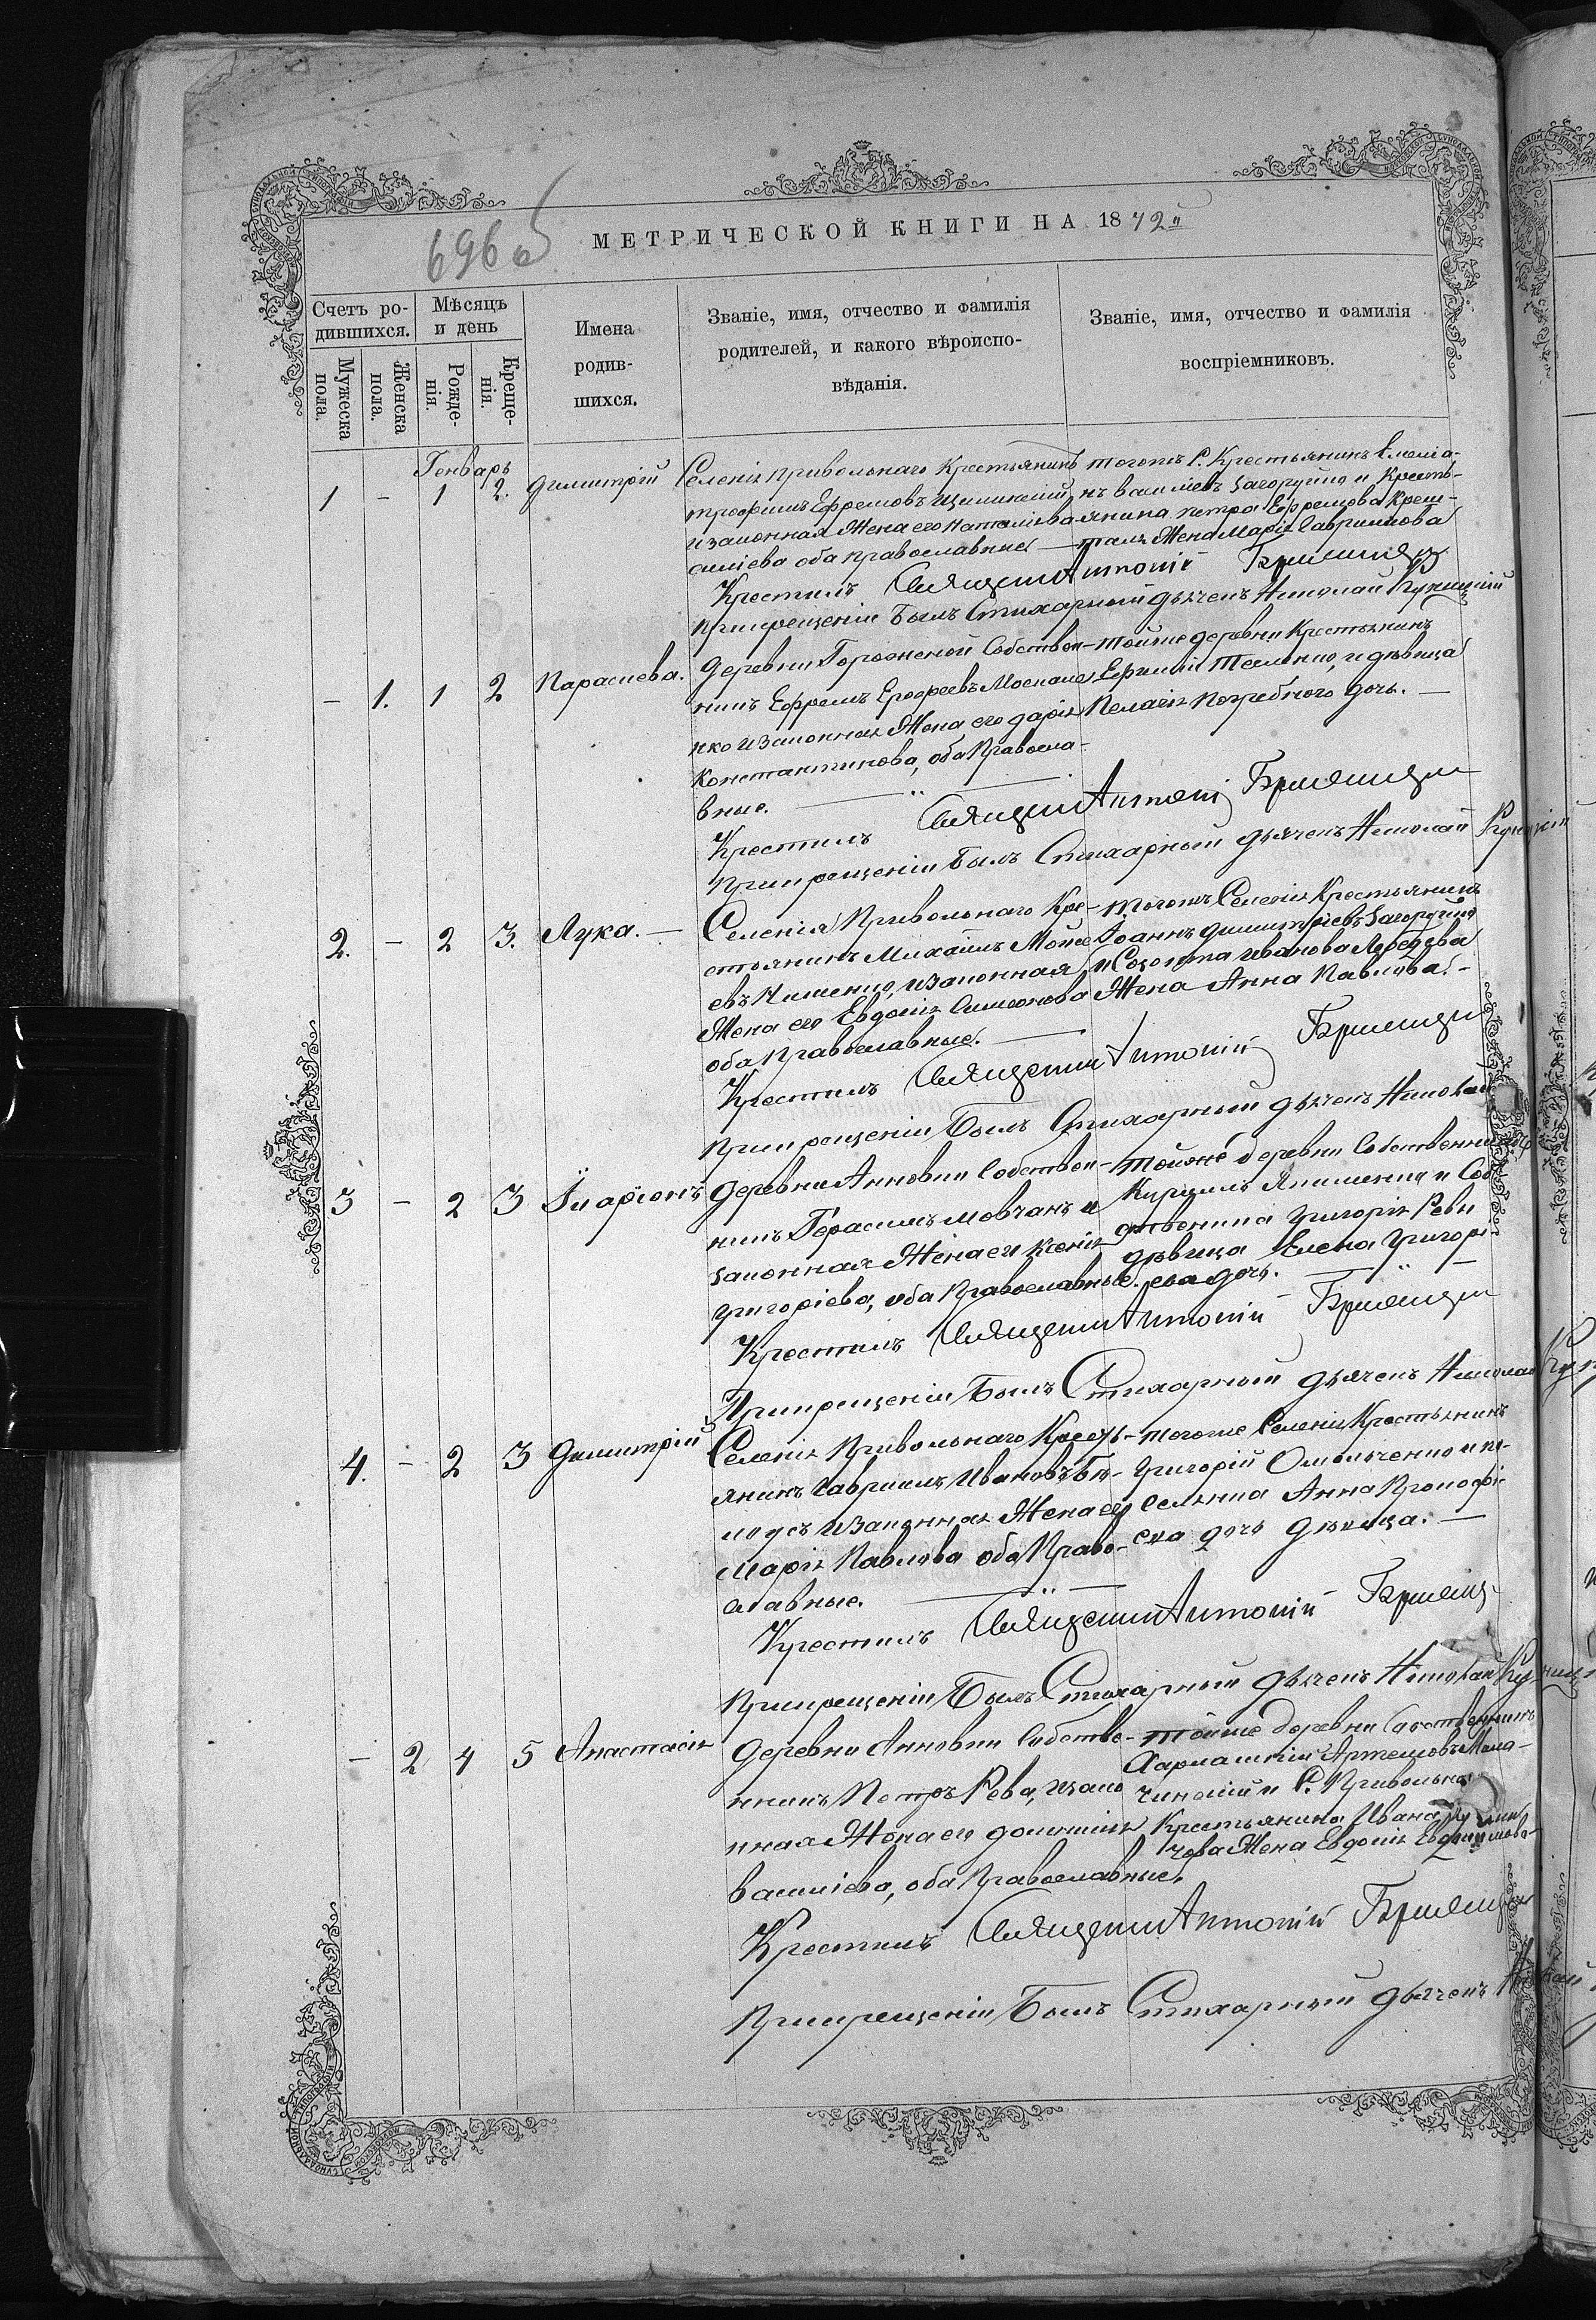 696 об
МЕТРИЧЕСКОЙ КНИГИ НА 1872й
Счетъ ро-
дившихся.
Мужеска
пола.
Женска
пола.
Мѣсяцъ
и день
Рожде-
нія.
Креще-
нія.
Имена
родив-
шихся.
Званіе, имя, отчество и фамилія
родителей, и какого вѣроиспо-
вѣданія.
Званіе, имя, отчество и фамилія
воспріемниковъ.
Генварь
1 - 1 2. Димитрій
Селенія Привольнаго Крестьянинъ
Трофимъ Ефремовъ
и законная Жена его Наталія Ва-
силіева оба православные
тогожъ С. Крестьянинъ Емеліа-
нъ Василіевъ Загоруйко и Кресть-
янина Петра Ефремова
Жена Марія Гавриилова
Крестилъ Священни Антоній
При крещеніи Былъ Стихарный дьячекъ Николай
- 1. 1 2 Параскева.
Деревни Горожаной Собствен-
никъ Ефремъ Ерофеевъ Москале-
нко и законная Жена его Дарія
Константинова, оба Правосла-
вные.
тойже деревни Крестьянинъ
Ефимій и дѣвица
Пелагія Погребного дочь.
Крестилъ Священни Антоній
При крещеніи Былъ Стихарный дьячекъ Николай
2. - 2 3. Лука.
Селенія Привольнаго Кре-
стьянинъ Михаилъ Моисе-
евъ законная
Жена его Евдокія Симеонова
оба Православные.
тогожъ Селенія Крестьянинъ
Іоаннъ Димитріевъ Загоруйко
и Созонта Иванова Лебедева
Жена Анна Павлова.
Крестилъ Священни Антоній
При крещеніи Былъ Стихарный дьячекъ Николай
3 - 2 3 Иларіонъ
Деревни Анновки Собствен-
никъ Герасимъ Мовчанъ и
законная Жена его Ксенія
Григоріева, оба Православные.
тойже деревни Собственникъ
Кириллъ и Соб-
ственника Григорія Ревы
дѣвица Елена Григорі-
ева дочь.
Крестилъ Священни Антоній
При крещеніи Былъ Стихарный дьячекъ Николай
4. - 2 3 Димитрій
Селенія Привольнаго Кресть-
янинъ Гавриилъ Ивановъ Бѣ-
лоусъ и законная Жена его
Марія Павлова оба Право-
славные.
тогоже Селенія Крестьянинъ
Григорій Омельченко и по-
селянка Анна Прокофі-
ева дочь дѣвица.
Крестилъ Священни Антоній
При крещеніи Былъ Стихарный дьячекъ Николай
- 2 4 5 Анастасія
Деревни Анновки Собстве-
нникъ Петръ Рева, и зако
нная Жена его Домникія
Василіева, оба Православные.
тойже деревни Собственникъ
Харлампій Артемовъ
и С. Привольнаго
Крестьянина Ивана
Жена Евдокія Евдокимова
Крестилъ Священни Антоній
При крещеніи Былъ Стихарный дьячекъ